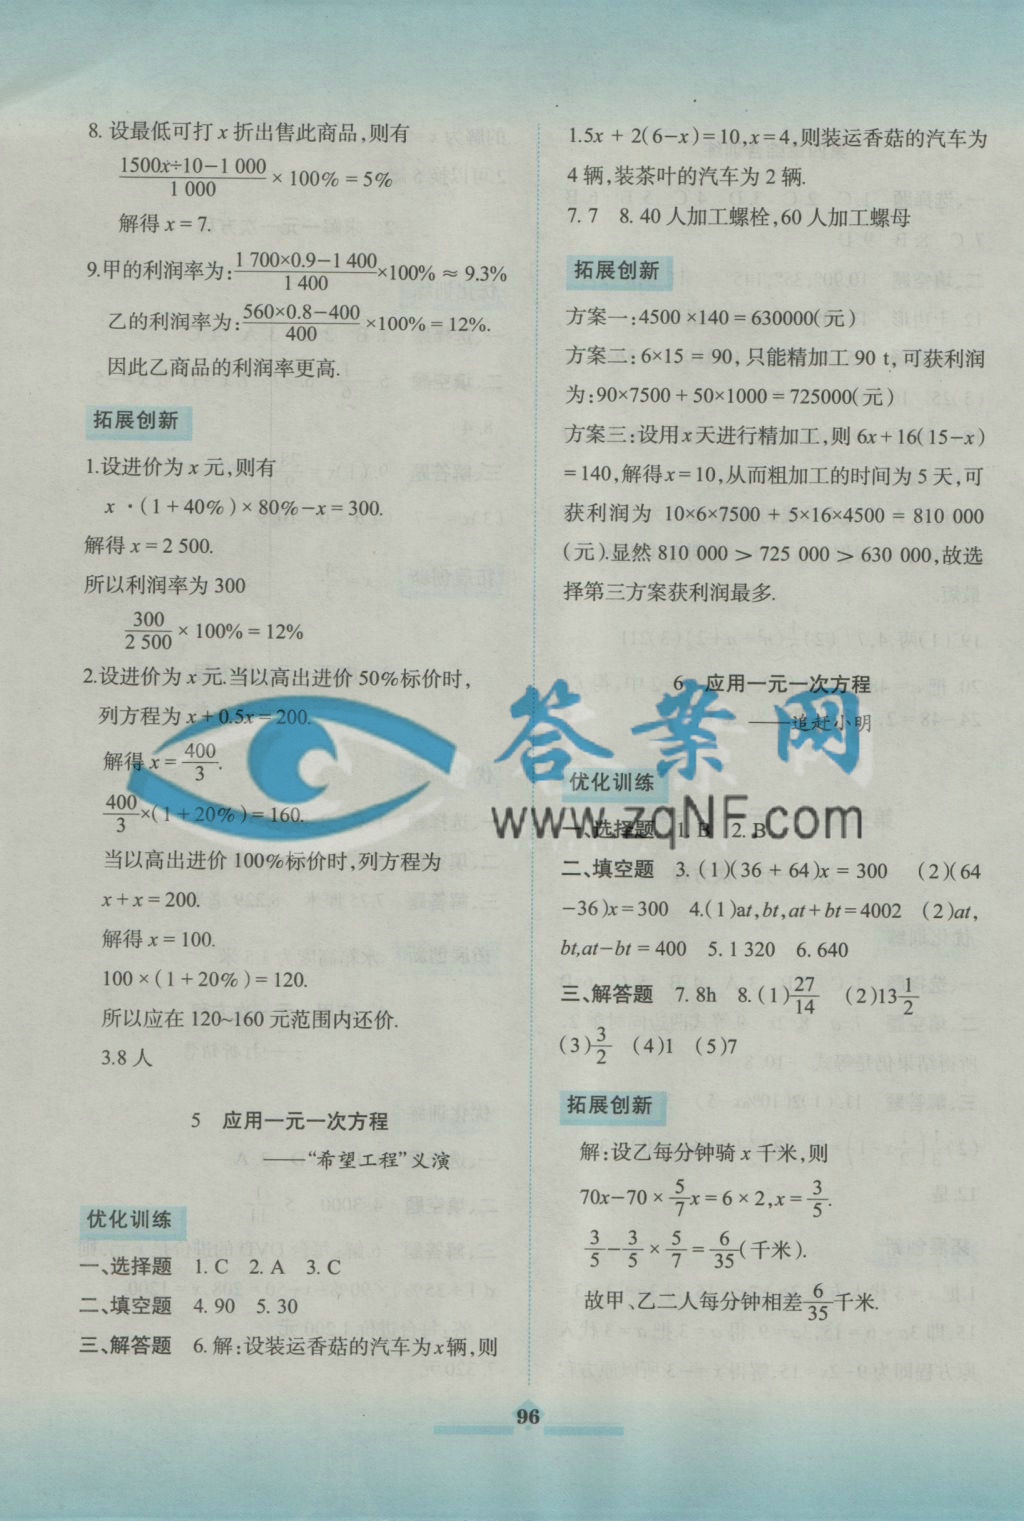 8. 设最低可打 x 折出售此商品,则有
(1500x÷10−1 000)/1 000 × 100% = 5%
解得 x = 7.
9.甲的利润率为:(1 700×0.9−1 400)/1 400 ×100% ≈ 9.3%
乙的利润率为:(560×0.8−400)/400 ×100% = 12%.
因此乙商品的利润率更高.
拓展创新
1.设进价为 x 元,则有
x ·(1+40%)× 80%−x = 300.
解得 x = 2 500.
所以利润率为 300
300/2 500 × 100% = 12%
2.设进价为 x 元.当以高出进价 50%标价时,
列方程为 x + 0.5x = 200.
解得 x = 400/3.
400/3 ×(1+20%)= 160.
当以高出进价 100%标价时,列方程为
x + x = 200.
解得 x = 100.
100 ×(1+20%)= 120.
所以应在 120~160 元范围内还价.
3.8 人
5 应用一元一次方程
——“希望工程”义演
优化训练
一、选择题 1. C 2. A 3. C
二、填空题 4. 90 5. 30
三、解答题 6. 解:设装运香菇的汽车为x辆,则
1.5x + 2(6−x)=10,x=4,则装运香菇的汽车为
4 辆,装茶叶的汽车为 2 辆.
7. 7 8. 40 人加工螺栓,60 人加工螺母
拓展创新
方案一:4500 ×140 = 630000(元)
方案二:6×15 = 90,只能精加工 90 t,可获利润
为:90×7500 + 50×1000 = 725000(元)
方案三:设用x天进行精加工,则 6x+16(15−x)
=140,解得x=10,从而粗加工的时间为 5 天,可
获利润为 10×6×7500 + 5×16×4500 = 810 000
(元).显然 810 000 > 725 000 > 630 000,故选
择第三方案获利润最多.
6 应用一元一次方程
——追赶小明
答案网
www.zqNF.com
优化训练
一、选择题 1. B 2. B
二、填空题 3. (1)(36 + 64)x = 300 (2)(64
−36)x=300 4.(1)at,bt,at+bt=4002 (2)at,
bt,at−bt = 400 5. 1 320 6. 640
三、解答题 7. 8h 8. (1)27/14 (2)13 1/2
(3)3/2 (4)1 (5)7
拓展创新
解:设乙每分钟骑 x 千米,则
70x−70 × 5/7 x = 6 × 2,x = 3/5.
3/5 − 3/5 × 5/7 = 6/35(千米).
故甲、乙二人每分钟相差 6/35 千米.
96